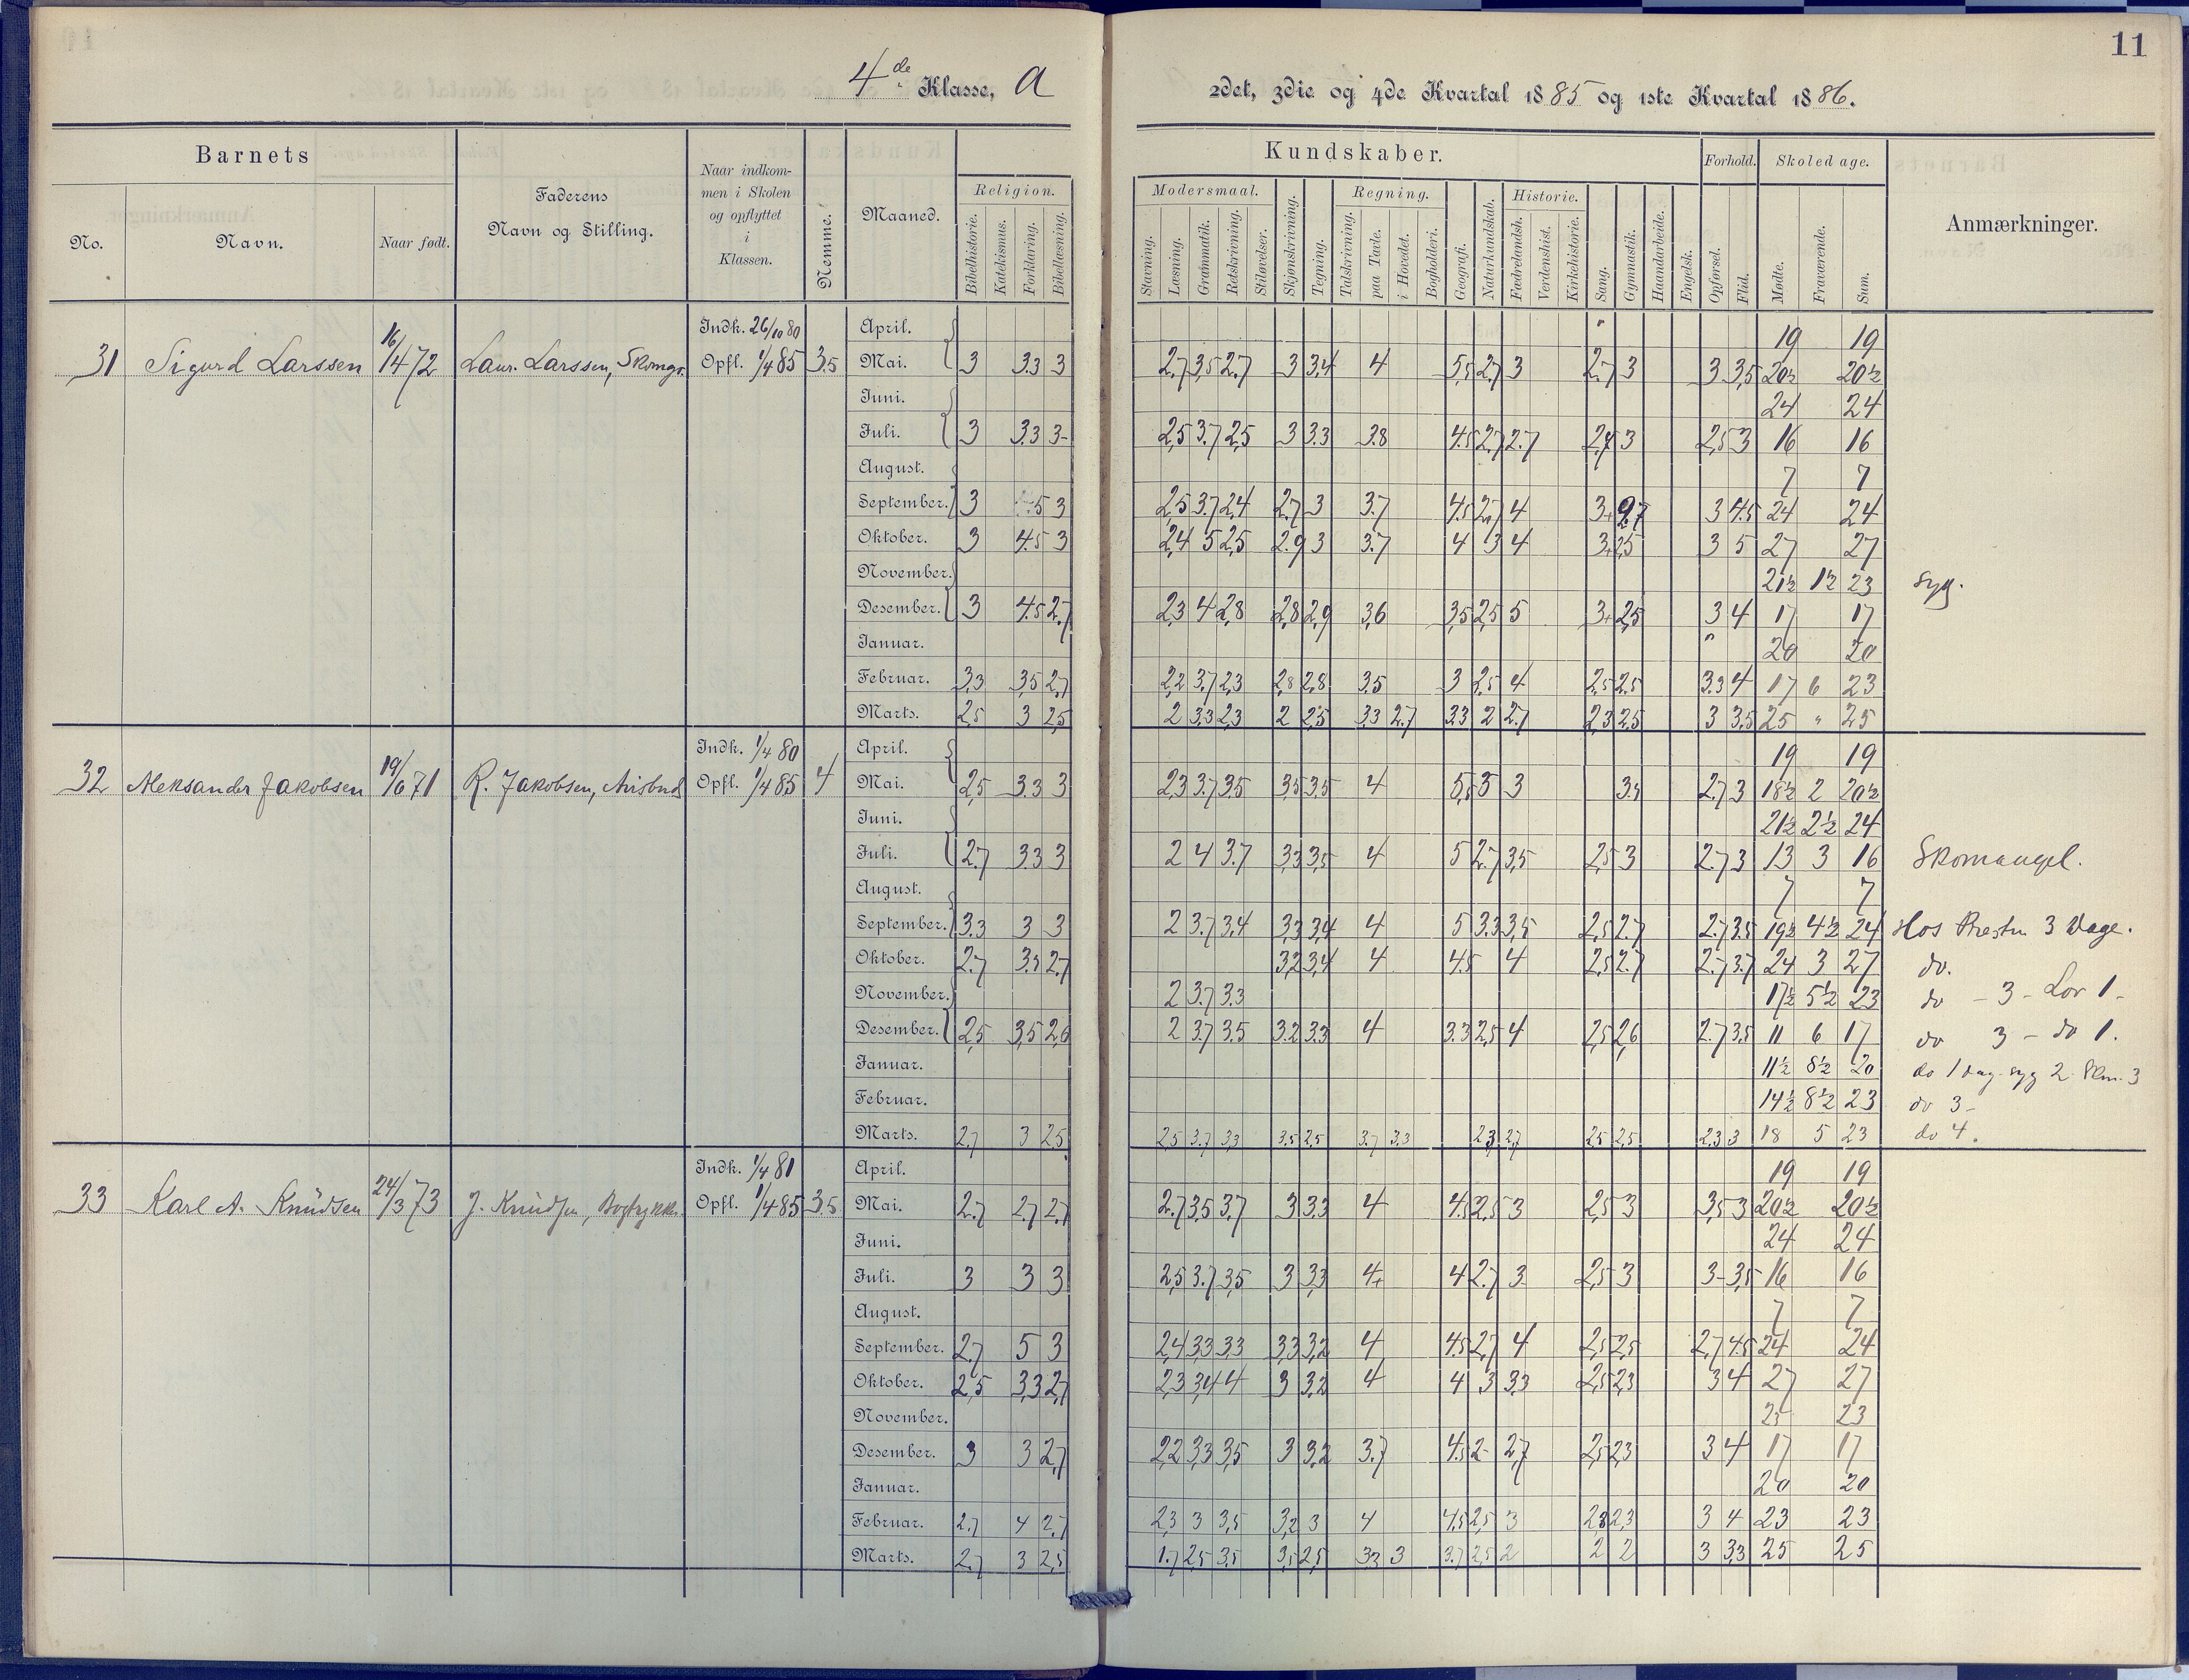 11
4de Klasse, a
2det, 3die og 4de Kvartal 1885 og 1ste Kvartal 1886.
Barnets
No.
Navn.
Naar født.
Faderens
Navn og Stilling.
Naar indkom-
men i Skolen
og opflyttet
i
Klassen.
Nemme.
Maaned.
Kundskaber.
Religion.
Bibelhistorie. Katekismus. Forklaring. Bibellæsning.
Modersmaal.
Stavning. Læsning. Grammatik. Retskrivning. Stiløvelser.
Skjønskrivning. Tegning.
Regning.
Talskrivning. paa Tavle. i Hovedet. Bogholderi.
Geografi. Naturkundskab.
Historie.
Fædrelandsh. Verdenshist. Kirkehistorie.
Sang. Gymnastik. Haandarbeide. Engelsk.
Forhold.
Opførsel. Flid.
Skoledage.
Mødte. Fraværende. Sum.
Anmærkninger.
31 Sigurd Larssen 16/1472 Laur. Larssen, Skomgr. Indk. 26/10 80 Opfl. 1/4 85 3.5
April. 19 19
Mai. 3 3.3 3 2.7 3,5 2.7 3 3,4 4 5,5 2,7 3 2.7 3 3 3,5 20½ 20½
Juni. 24 24
Juli. 3 3.3 3- 2,5 3.7 2,5 3 3.3 3.8 4.5 2,7 2.7 3 2,5 3 16 16
August. 7 7
September. 3 5 3 2,5 3.7 2,4 2.7 3 3.7 4.5 2,7 4 3+ 2,7 3 4.5 24 24
Oktober. 3 4.5 3 2,4 5 2,5 2.9 3 3.7 4 3 4 3+ 2,5 3 5 27 27
November. 21½ 1½ 23 Syg.
Desember. 3 4.5 2.7 2,3 4 2,8 2,8 2,9 3,6 3,5 2,5 5 3+ 2,5 3 4 17 17
Januar. 20 20
Februar. 3,3 3,5 2,7 2,2 3,7 2,3 2,8 2,8 3.5 3 2,5 4 2,5 2,5 3.3 4 17 6 23
Marts. 2,5 3 2,5 2 3,3 2,3 2 2,5 3,3 2.7 3,3 2 2,7 2,3 2,5 3 3,5 25 " 25
32 Aleksander Jakobsen 19/6 71 R. Jakobsen, Avisbud Indk. 1/4 80 Opfl. 1/4 85 4
April. 19 19
Mai. 2,5 3.3 3 2,3 3.7 3.5 3,5 3,5 4 5,5 5 3 3,5 2.7 3 18½ 2 20½
Juni. 21½ 2½ 24
Juli. 2.7 3.3 3 2 4 3.7 3,3 3,5 4 5 2.7 3,5 2,5 3 2.7 3 13 3 16 Skomangel.
August. 7 7
September. 3.3 3 3 2 3.7 3,4 3,3 3,4 4 5 3.3 3,5 2,5 2.7 2.7 3.5 19½ 4½ 24 Hos Presten 3 Dage.
Oktober. 2.7 3,5 2.7 3,2 3,4 4 4.5 4 2,5 2.7 2.7 3.7 24 3 27 do.
November. 2 3.7 3.3 17½ 5½ 23 do - 3 - Lov 1 -
Desember. 2,5 3,5 2,6 2 3.7 3.5 3.2 3.3 4 3.3 2,5 4 2,5 2,6 2.7 3,5 11 6 17 do 3 - do 1.
Januar. 11½ 8½ 20 do 1 dag. syg 2. Skm. 3
Februar. 14½ 8½ 23 do 3 -
Marts. 2.7 3 2,5 2,5 3.7 3,3 3.5 2,5 3.7 3,3 2,3 2,7 2,5 2,5 2,3 3 18 5 23 do 4.
33 Karl A. Knudsen 24/3 73 J. Knudsen, Bogtrykk. Indk. 1/4 81 Opfl. 1/4 85 3.5
April. 19 19
Mai. 2.7 2.7 2.7 2.7 3,5 3,7 3 3.3 4 4.5 2.5 3 2,5 3 3,5 3 20½ 20½
Juni. 24 24
Juli. 3 3 3 2,5 3.7 3,5 3 3,3 4+ 4 2.7 3 2,5 3 3- 3,5 16 16
August. 7 7
September. 2.7 5 3 2,4 3,3 3,3 3,3 3,2 4 4.5 2,7 4 2,5 2,5 2,7 4.5 24 24
Oktober. 2,5 3,3 2,7 2,3 3,4 4 3 3,2 4 4 3 3,3 2,5 2,3 3 4 27 27
November. 23 23
Desember. 3 3 2,7 2,2 3,3 3,5 3 3,2 3.7 4.5 2- 2,7 2,5 2,3 3 4 17 17
Januar. 20 20
Februar. 2.7 4 2.7 2,3 3 3,5 3,2 3 4 4,5 2,5 3 2,3 2,3 3 4 23 23
Marts. 2.7 3 2,5 1.7 2,5 3,5 3,5 2,5 3,3 3 3.7 2,5 2 2 2 3 3,3 25 25